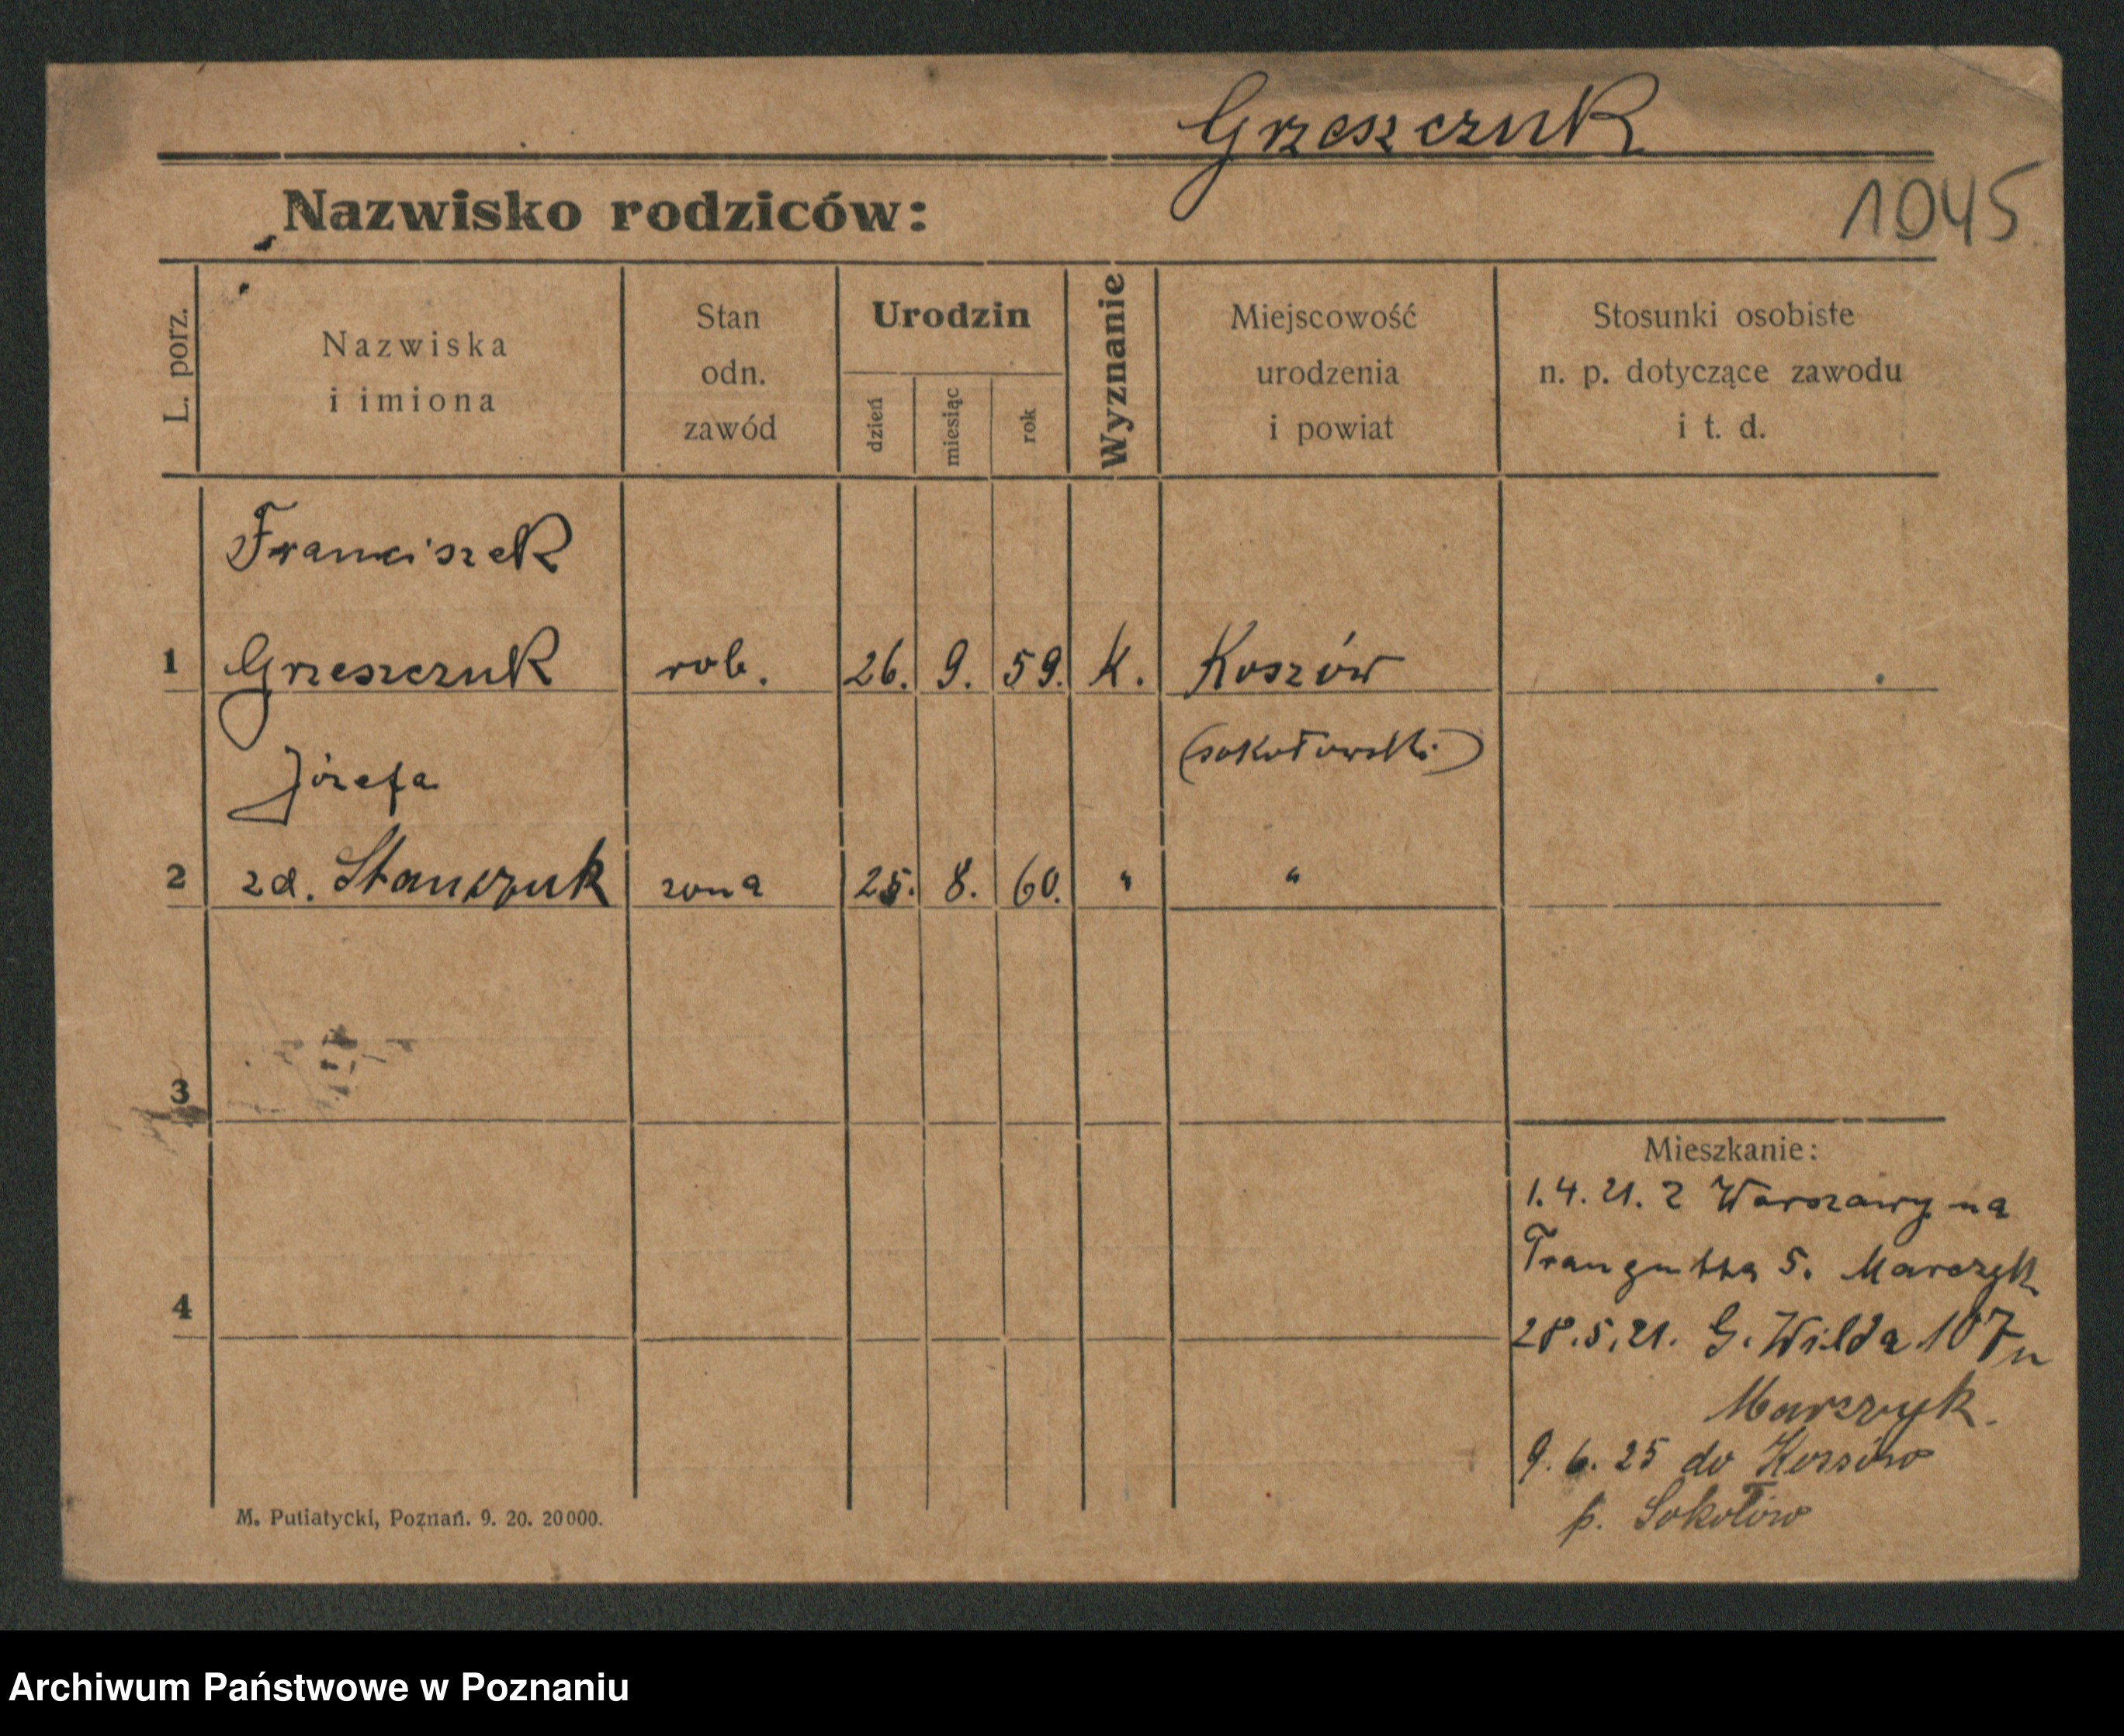 Grzeszczuk
Nazwisko rodziców:
1045
L. porz.
Nazwiska
i imiona
Stan
odn.
zawód
Urodzin
dzień
miesiąc
rok
Wyznanie
Miejscowość
urodzenia
i powiat
Stosunki osobiste
n. p. dotyczące zawodu
i t. d.
Franciszek
1 Grzeszczuk rob. 26. 9. 59. K. Koszów
(sokołowski)
Józefa
2 zd. Stanczuk zona 25. 8. 60. " "
3
4
Mieszkanie:
1.4.21. z Warszawy na
Traugutta 5. Marczyk
28.5.21. G. Wilda 107 u
Marczyk.
9.6.25 do Kossów
p. Sokołów
M. Putiatycki, Poznań. 9. 20. 20000.
Archiwum Państwowe w Poznaniu